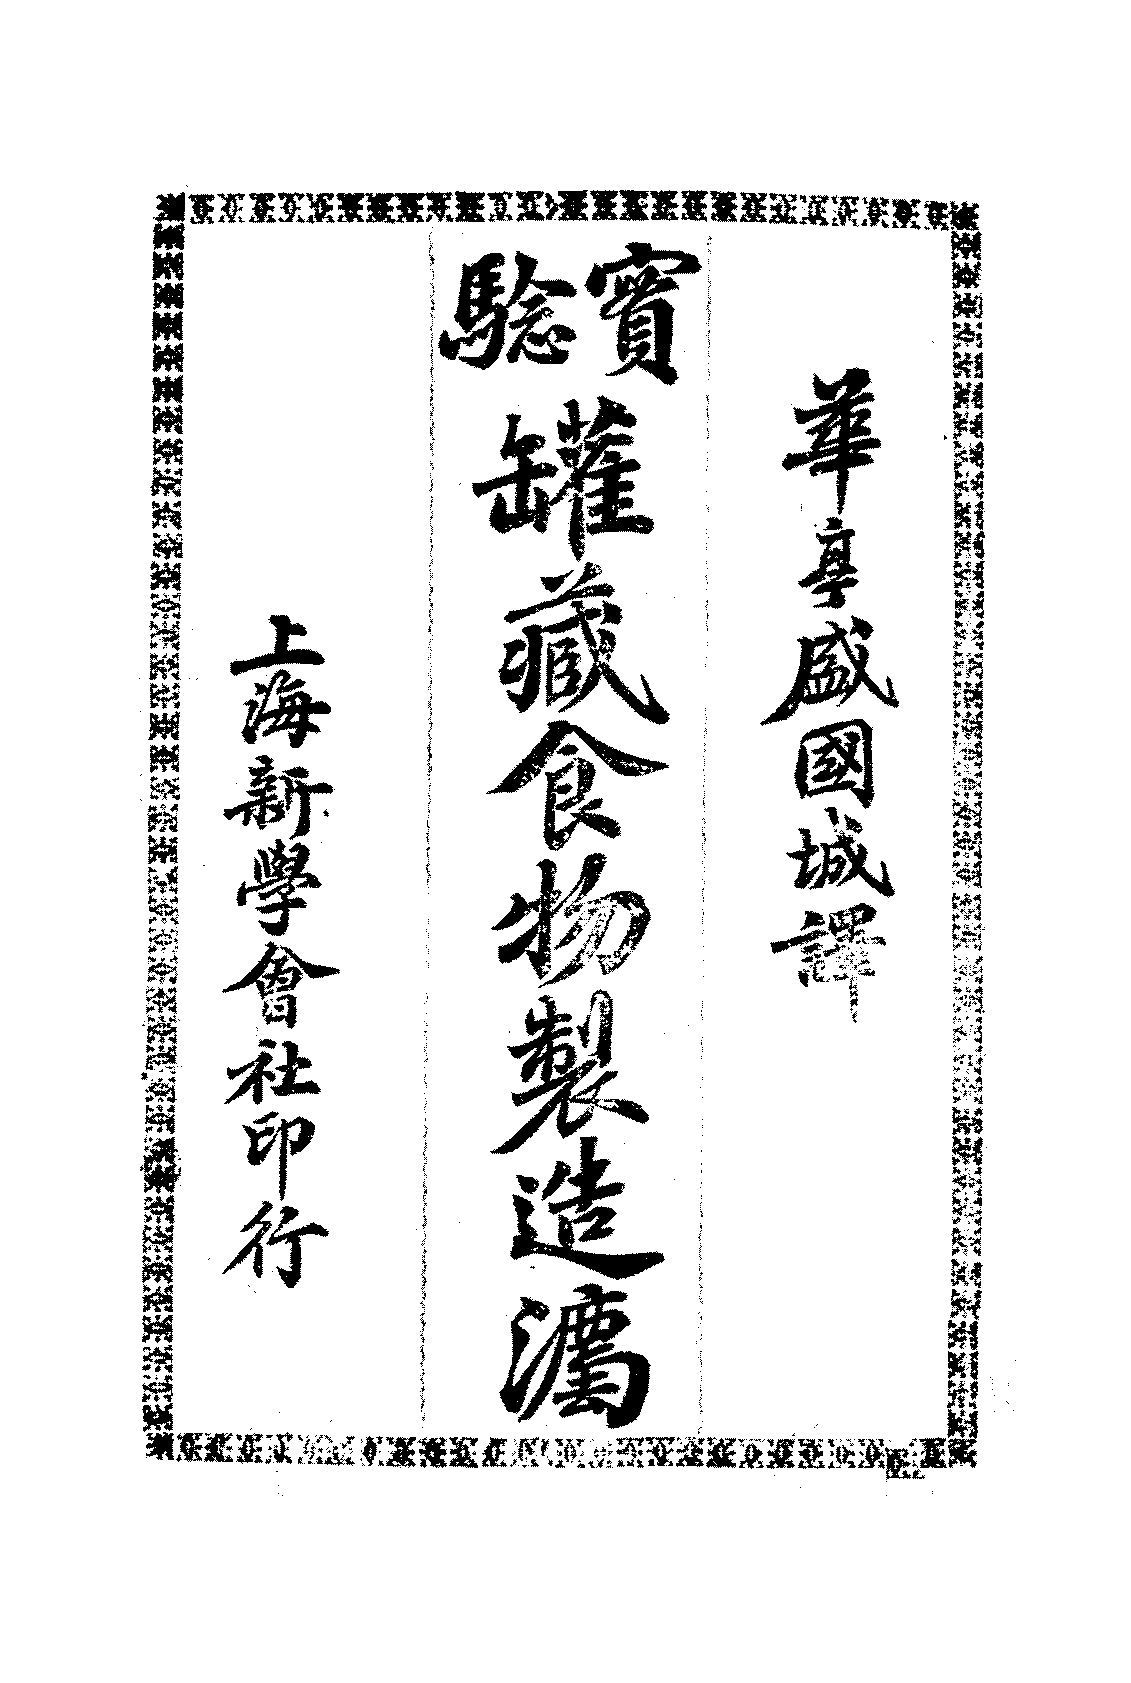 華亭盛國城譯
實騐罐藏食物製造灋
上海新學會社印行